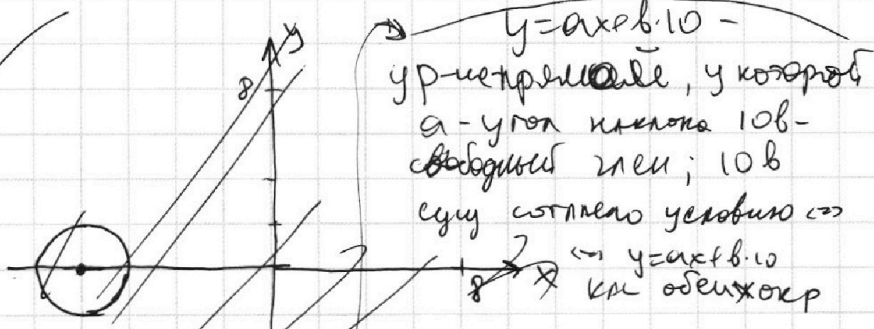 y=ax+b·10 -
ур-не прямой, у которой
a - угол наклона 10b -
свободный член; 10b
сущ согласно условию <=>
<=> y=ax+b·10
кас обеих окр
y
8
8
x